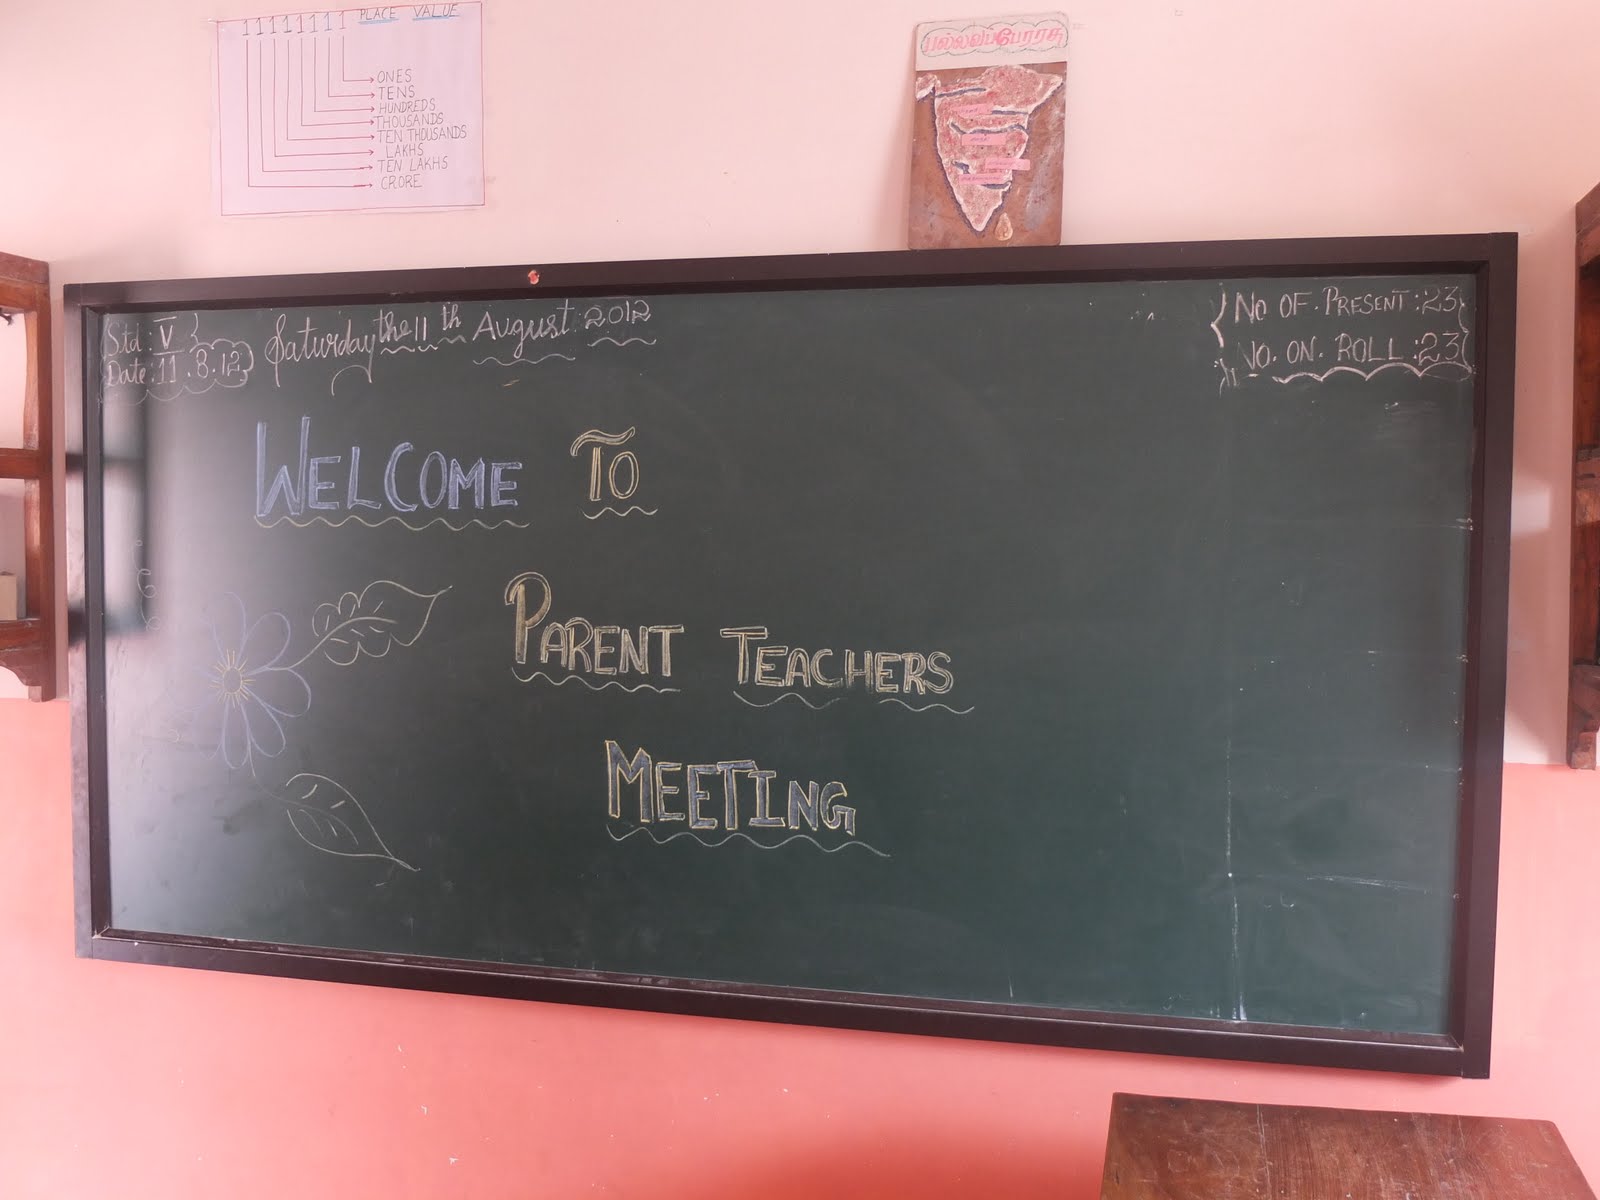 11111111 PLACE VALUE
ONES
TENS
HUNDREDS
THOUSANDS
TEN THOUSANDS
LAKHS
TEN LAKHS
CRORE
பல்லவப்பேரரசு
Std : V
Date : 11.8.12
Saturday the 11th August 2012
No OF. PRESENT : 23
NO. ON. ROLL : 23
WELCOME TO
PARENT TEACHERS
MEETING